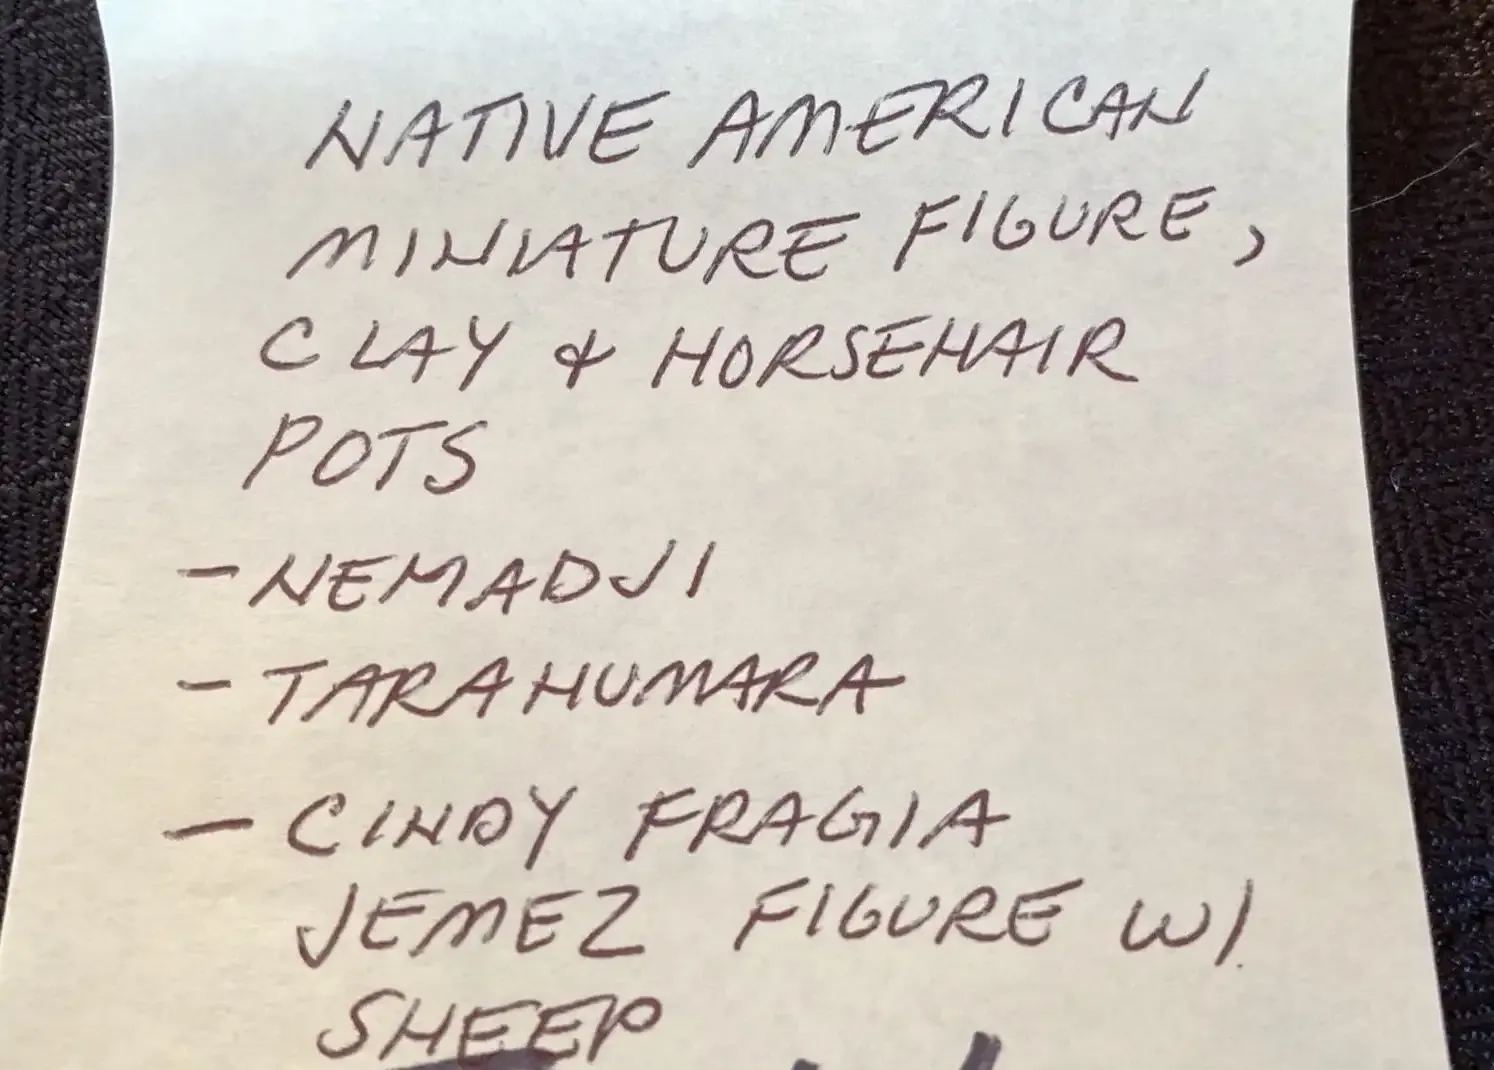 NATIVE AMERICAN
MINIATURE FIGURE,
CLAY & HORSEHAIR
POTS
- NEMADJI
- TARAHUMARA
- CINDY FRAGIA
JEMEZ FIGURE W/
SHEEP